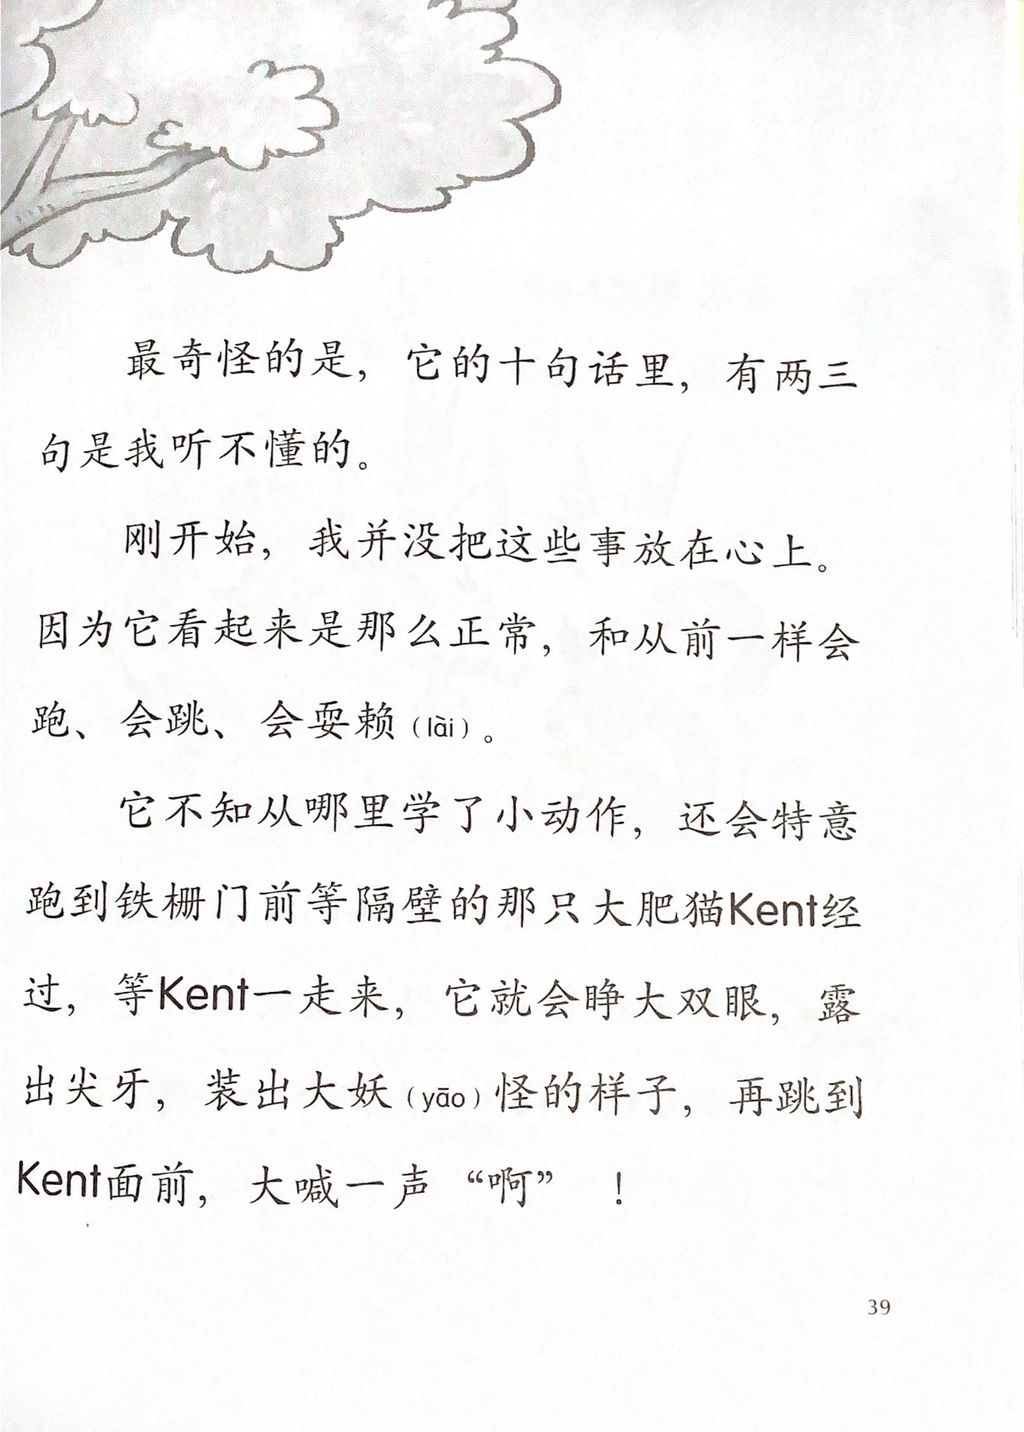 最奇怪的是，它的十句话里，有两三
句是我听不懂的。
刚开始，我并没把这些事放在心上。
因为它看起来是那么正常，和从前一样会
跑、会跳、会耍赖（lài）。
它不知从哪里学了小动作，还会特意
跑到铁栅门前等隔壁的那只大肥猫Kent经
过，等Kent一走来，它就会睁大双眼，露
出尖牙，装出大妖（yāo）怪的样子，再跳到
Kent面前，大喊一声“啊”！
39